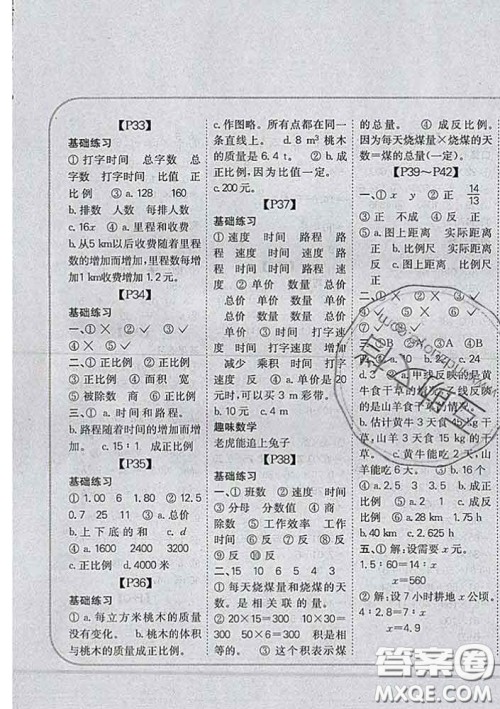 【P33】
基础练习
① 打字时间 总字数 总
字数 打字时间 比值 正
比例 ③ a. 128 160
b. 排数 人数 每排人数
c. 16x ④ a. 里程和收费
b. 从5 km以后收费随着里程
数的增加而增加,里程数每
增加1 km收费增加1.2元。
【P34】
基础练习
一、① × ② ✓ ③ ✓
④ × ⑤ ✓ ⑥ ✓
二、① 正比例 ② 正比例
③ 正比例 ④ 面积 宽
⑤ 被除数 商 ⑥ 正比例
三、① a. 时间和路程。
b. 路程随着时间的增加而增
加。 c. 15∶1 成正比例
【P35】
基础练习
① 1.00 6 1.80 ② 12.5
0.7 25 11 ③ a. 总价
b. 上下底的和 c. d
④ a. 1600 2400 3200
c. 正比例 d. 4000米
【P36】
基础练习
① a. 每立方米桃木的质量
没有变化。 b. 桃木的体积
与桃木的质量成正比例。
c. 作图略。所有点都在同一
条直线上。 d. 8 m³ 桃木
的质量是6.4 t。 ② b. 成
正比例,因为比值一定。
c. 200元。
【P37】
基础练习
① 速度 时间 路程 路
程 速度 时间 路程
时间 速度 路程 时间
速度 ② 单价 数量 总
价 总价 单价 数量
总价 数量 单价 总价
数量 单价 ③ 时间
速度 时间 打字速度
减少 乘积 时间 打字速
度 ④ a. 单价是20元
时,可以买3 m彩带。
b. 10元 c. 4 m
趣味数学
老虎能追上兔子
【P38】
基础练习
一、① 班数 ② 速度 时间
③ 分母 分数值 ④ 商
除数 ⑤ 工作效率 工作
时间 ⑥ 反 ⑦ 正 ⑧ 反
⑨ 反 ⑩ 反
二、15 10 6 5 4 3 2
① 每天烧煤量和烧煤的天
数。是相关联的量。
② 20×15=300 30×10=
300 50×6=300 积是相
等的。 ③ 这个积表示煤
的总量。 ④ 成反比例。
因为每天烧煤量×烧煤的天
数=煤的总量(一定)。
【P39~P42】
一、① x y ② 正 14/13
③ 正 不成 ④ 反
⑤ a. 图上距离 实际距离
正 b. 比例尺 实际距离
正 c. 图上距离 比例尺
反
二、① × ② × ③ ✓
④ ✓
三、① B ③ A ④ B
b. 10 c. 24
甲线反映的是黄
牛食干草的
映的是山羊食干草的情况。
b. 估计黄牛3天食15 kg的干
草,山羊4天食15 kg的干
草。 c. 黄牛能吃2天,山
羊能吃6天。 ③ b. 16个
④ a. 2.5 3 b. 4.5
⑤ a. 2 b. 成正比例
c. 1 ⑥ a. 28 km 1.75 h
b. 40 km c. 正比例
五、① 解:设需要x元。
1.5∶60=14∶x
x=560
② 解:设7小时耕地x公顷。
4∶2.8=7∶x
x=4.9
答案圈
MXQE.COM